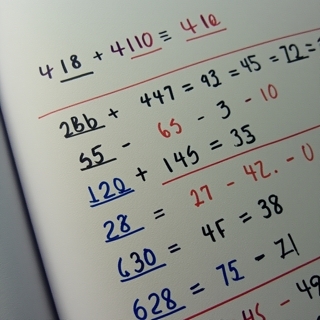 418 + 4110 ≡ 410
2Bb + 447 = 93 = 45 = 72 =
55 - 65 - 3 - 10
120 + 145 = 35
28 = 27 - 42. - 0
630 = 4F = 38
628 = 75 - 71
45 - 49